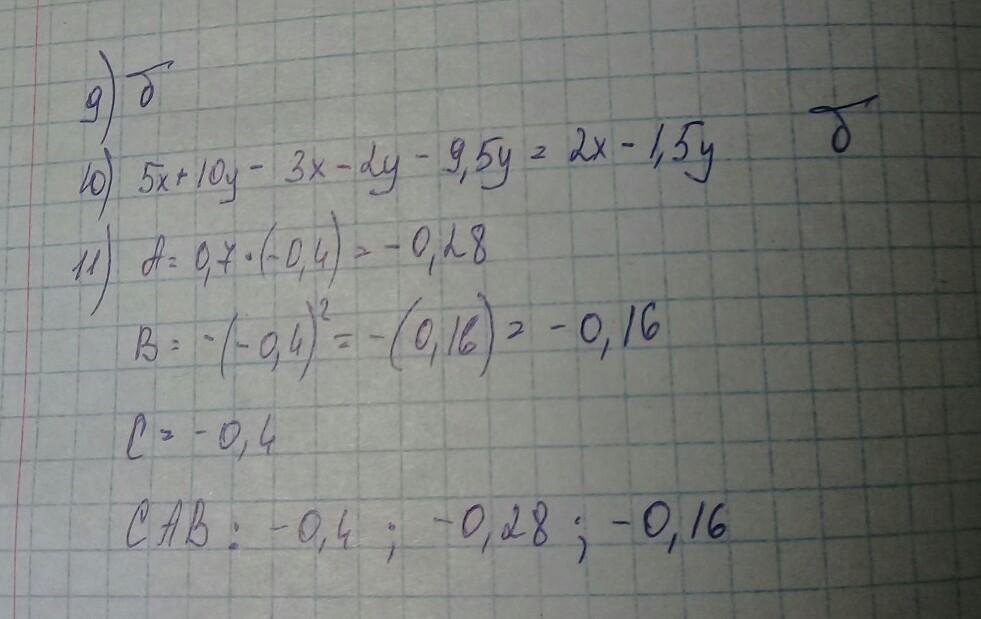 9) б
10) 5x+10y - 3x - 2y - 9,5y = 2x - 1,5y б
11) A = 0,7 · (-0,4) = -0,28
B = -(-0,4)² = -(0,16) = -0,16
C = -0,4
CAB: -0,4 ; -0,28 ; -0,16